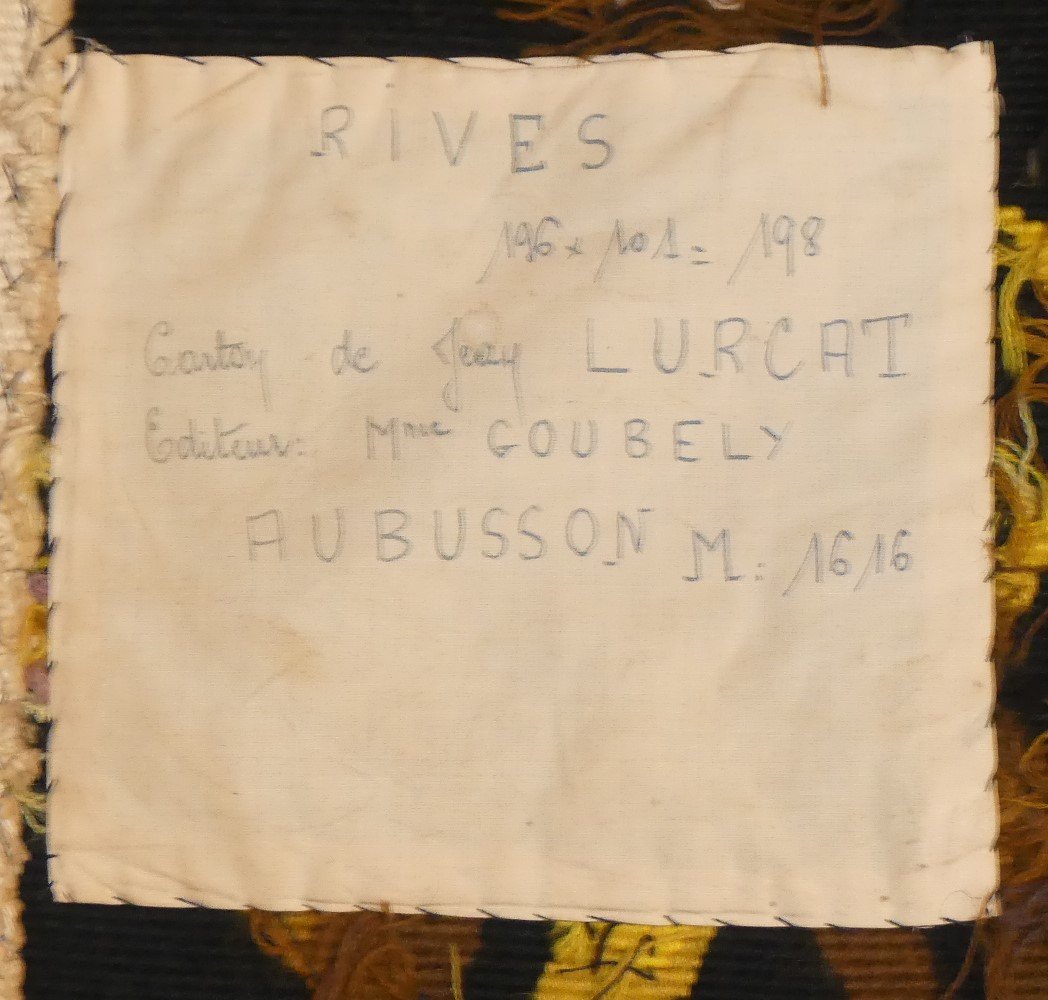 RIVES
196 x 101 = 198
Carton de Jean LURCAT
Editeur: Mme GOUBELY
AUBUSSON M: 1616